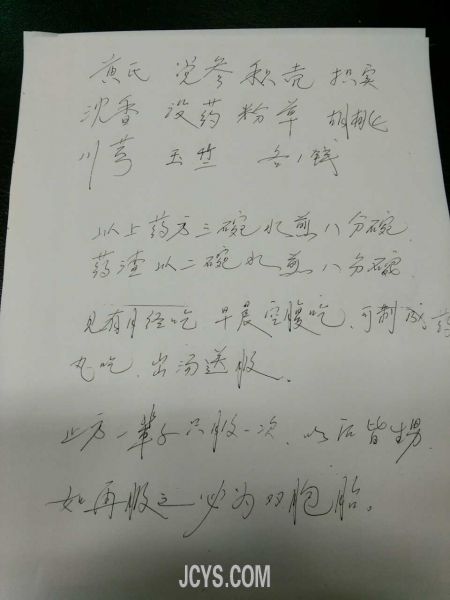 黄氏 党参 积壳 枳实
沉香 没药 粉草 胡桃
川芎 玉竺 各1钱
以上药方三碗水煎八分碗
药渣以二碗水煎八分碗
见有月经吃 早晨空腹吃、可制成药
丸吃、出汤送服。
此方一辈子只服一次、以后皆生男
如再服之必为双胞胎。
JCYS.COM